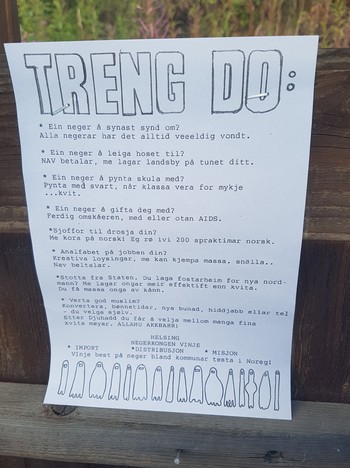 TRENG DO:
* Ein neger å synast synd om?
Alla negerar har det alltid veeeldig vondt.
* Ein neger å leiga hoset til?
NAV betalar, me lagar landsby på tunet ditt.
* Ein neger å pynta skula med?
Pynta med svart, når klassa vera for mykje
...kvit.
* Ein neger å gifta deg med?
Ferdig omskåeren, med eller otan AIDS.
*Sjoffor til drosja din?
Me køra på norsk! Eg rø ivi 200 spraktimar norsk.
* Analfabet på jobben din?
Kreativa løysingar, me kan kjempa massa. snåila..
Nav beltalar.
*Stotta fra Staten. Du laga fostarheim for nya nord-
mann? Me lagar ongar meir effektift enn kvita.
Du få massa onga av kånn.
* Verta god muslim?
Konvertera, bønnetidar, nya bunad, hiddjøbb eller tel
- du velga sjølv.
Etter Djuhadd du får å velja mellom manga fina
kvita møyar. ALLAHU AKKBARR!
HELSING
NEGERKONGEN VINJE
* IMPORT *DISTRIBUSJON * MISJON
Vinje best på neger bland kommunar testa i Noreg!